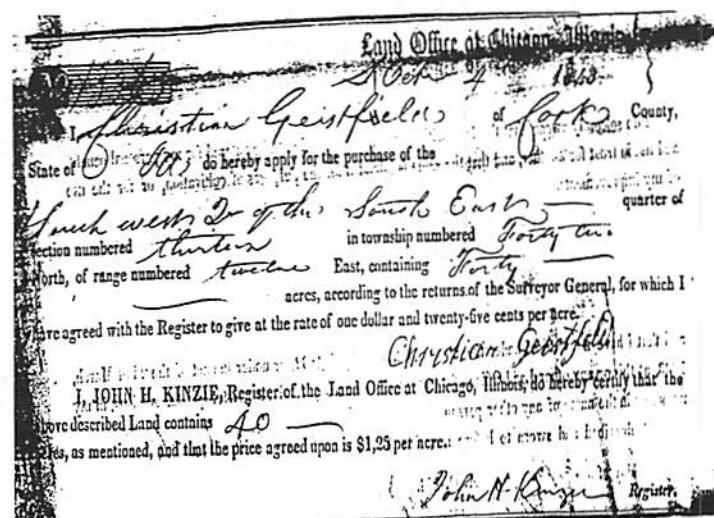 Land Office at Chicago, Illinois
Oct 4 1843
I Christian Geistfield of Cook County,
State of Ills do hereby apply for the purchase of the
South west Qr of the South East — quarter of
ection numbered thirteen in township numbered Forty two
orth, of range numbered twelve East, containing Forty —
— acres, according to the returns of the Surveyor General, for which I
ave agreed with the Register to give at the rate of one dollar and twenty-five cents per acre.
Christian Geistfield
I, JOHN H. KINZIE, Register of the Land Office at Chicago, Illinois, do hereby certify that the
bove described Land contains 40 —
es, as mentioned, and that the price agreed upon is $1,25 per acre.
John H. Kinzie Register.